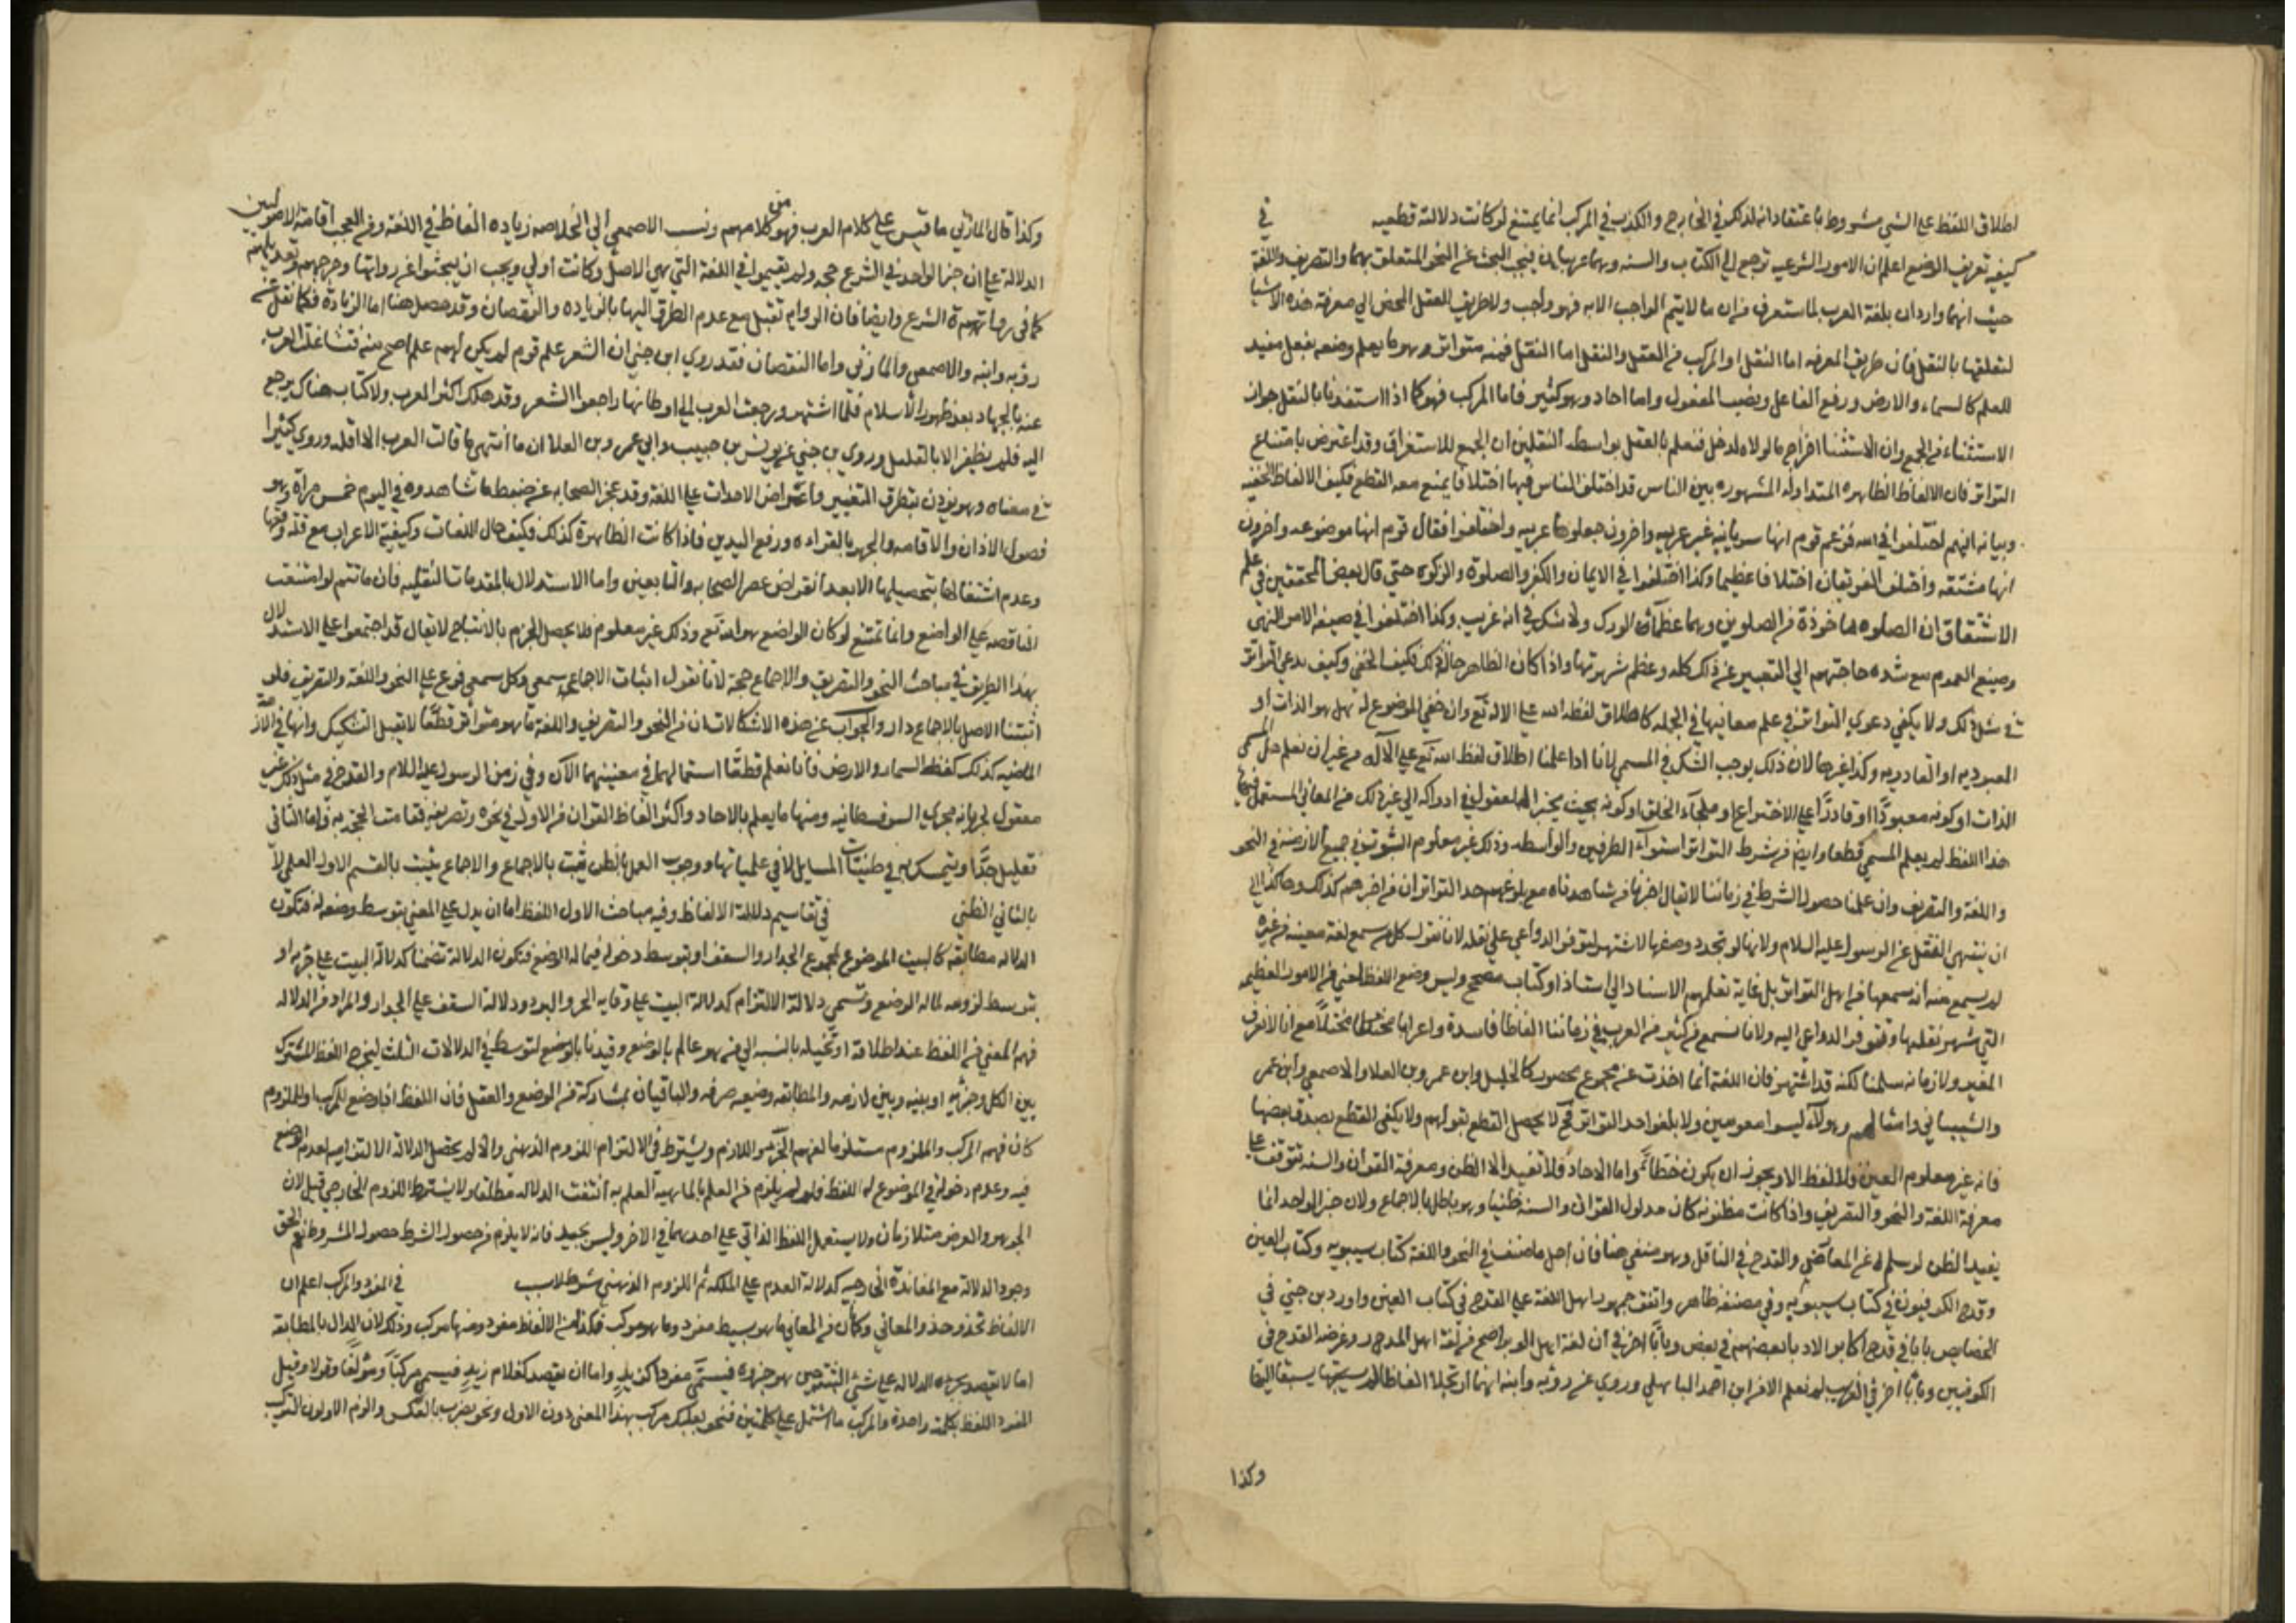 اطلاق اللفظ علي الشي مشروط باعتقاد انه لذلك في الخارج والكذب في المركب انما يمتنع لو كانت دلالته قطعيه في
كيفيه تعريف الوضع اعلم ان الامور الشرعيه ترجع الي الكتاب والسنه وهما عربيان فيجب البحث عن النحو المتعلق بهما والتصريف واللغة
حيث انهما واردان بلغة العرب لما ستعرف من ان ما لا يتم الواجب الا به فهو واجب ولا طريق للعقل المحض الي معرفة هذه الاشيا
لتعلقها بالنقل فان طريق المعرفه اما النقل او المركب من العقل والنقل اما النقل فمنه متواتر وهو ما يعلم وضعه بنقل مفيد
للعلم كالسماء والارض ورفع الفاعل ونصب المفعول واما احاد وهو كثير فاما المركب فهو كما اذا استفدنا بالنقل جواز
الاستثناء من الجمع وان الاستثنا اخراج ما لولاه لدخل فنعلم بالعقل بواسطه النقلين ان الجمع للاستغراق وقد اعترض بامتناع
التواتر فان الالفاظ الظاهره المتداوله المشهوره بين الناس قد اختلف الناس فيها اختلافا يمنع معه القطع فكيف الالفاظ الخفيه
وبيانه انهم اختلفوا في الله فزعم قوم انها سريانيه غير عربيه واخرون جعلوها عربيه واختلفوا فقال قوم انها موضوعه واخرون
انها مشتقه واختلف الفريقان اختلافا عظيما وكذا اختلفوا في الايمان والكفر والصلوة والزكوه حتي قال بعض المحققين في علم
الاشتقاق ان الصلوه ماخوذة من الصلوين وهما عظما الورك ولا شك في انه غريب وكذا اختلفوا في صيغه الامر والنهي
وصيغ العموم مع شده حاجتهم الي التعبير عن ذلك كله وعظم شهرتها واذا كان الظاهر حاله ذلك فكيف الخفي وكيف يدعي التواتر
في مثل ذلك ولا يكفي دعوي التواتر في علم معانيها في الجمله كاطلاق لفظه الله علي الاله تع وان خفي الموضوع له هل هو الذات او
المعبوديه او القادريه وكذا غيرها لان ذلك يوجب الشك في المسمي لانا اذا علمنا اطلاق لفظ الله تع علي الاله من غير ان نعلم هل المسمي
الذات او كونه معبودا او قادرا علي الاختراع او ملجأ الخلق او كونه بحيث يتحير العقول في ادراكه الي غير ذلك من المعاني المستعمل فيها
هذا اللفظ لم يعلم المسمي قطعا وايضا من شرط التواتر استواء الطرفين والواسطه وذلك غير معلوم الثبوت في جميع الازمنه في النحو
واللغة والتصريف وان علمنا حصول الشرط في زماننا لا يقال اخبرنا من شاهدناه مع بلوغهم حد التواتر ان من اخبرهم كذلك وهكذا الي
ان ينتهي النقل عن الرسول عليه السلام ولانها لو تجدد وضعها لاشتهر لتوفر الدواعي علي نقله لانا نقول كل من سمع لغة معينه من غيره
لم يسمع منه انه سمعها من اهل التواتر بل غاية نقلهم الاسناد الي استاذ او كتاب مصحح وليس وضع اللفظ لمعني من الامور العظيمه
التي شهر نقلها وتتوفر الدواعي اليه ولانا نسمع من كثير من العرب في زماننا الفاظا فاسدة واعرابا مختلا مع انا لا نعرف
المغير ولا زمانه سلمنا لكنه قد اشتهر فان اللغة انما اخذت عن مجموع محصور كالخليل وابن عمرو بن العلا والاصمعي وابن عمر
والشيباني وامثالهم وهولاء ليسوا معصومين ولا بلغوا حد التواتر فح لا يحصل القطع بقولهم ولا يكفي القطع بصدق بعضها
فانه غير معلوم العين ولا لفظ الا ويجوز ان يكون خطأ واما الاحاد فلا تفيد الا الظن ومعرفة القران والسنه تتوقف علي
معرفة اللغة والنحو والتصريف واذا كانت مظنونه كان مدلول القران والسنه ظنيا وهو باطل بالاجماع ولان خبر الواحد انما
يفيد الظن لو سلم له عن المعارض والقدح في الناقل وهو منتفي هنا فان اجل ما صنف في النحو واللغة كتاب سيبويه وكتاب العين
وقدح الكوفيون في كتاب سيبويه وفي مصنفه ظاهر واتفق جمهور اهل اللغة علي القدح في كتاب العين واورد بن جني في
الخصايص بابا في قدح اكابر الادباء بعضهم في بعض وبابا اخر في ان لغة اهل الوبر اصح من لغة اهل المدر وغرضه القدح في
الكوفيين وبابا اخر في الغريب لم نعلم الا من ابن احمر الباهلي وروي عن روبه وابنه انهما ارتجلا الفاظا لم يسمعاها ولا سبقا اليها
وكذا
وكذا قال المازني ما قيس علي كلام العرب فهو من كلامهم ونسب الاصمعي الي الخلاعه زياده الفاظ في اللغة ومن العجب اقامة الاصوليين
الدلالة علي ان خبر الواحد في الشرع حجه ولم يقيموا في اللغة التي هي الاصل وكانت اولي ويجب ان يبحثوا عن رواتها وجرحهم وتعديلهم
كما في رواتهم في الشرع وايضا فان الروايه تقبل مع عدم الطرق اليها بالزياده والنقصان وقد حصل هنا اما الزيادة فكما نقل عن
روبه وابنه والاصمعي والمازني واما النقصان فقد روي ابن جني ان الشعر علم قوم لم يكن لهم علم اصح منه فتشاغلت العرب
عنه بالجهاد بعد ظهور الاسلام فلما اشتهر ورجعت العرب الي اوطانها راجعوا الشعر وقد هلك اكثر العرب ولا كتاب هناك يرجع
اليه فلم يظفر الا بالقليل وروي بن جني عن يونس بن حبيب وابي عمرو بن العلا ان ما انتهي مما قالت العرب الا اقله وروي كثيرا
في معناه وهو يوذن بتطرق التغيير واعتراض الاحداث علي اللغة وقد عجز الصحابه عن ضبط ما شاهدوه في اليوم خمس مراة وهو
فصول الاذان والاقامه والجهر بالقراءه ورفع اليدين فاذا كانت الظاهرة كذلك فكيف حال اللغات وكيفية الاعراب مع قلة وقعها
وعدم اشتغالها بتحصيلها الا بعد انقراض عصر الصحابه والتابعين واما الاستدلال بالمقدمات النقليه فانما تتم لو امتنعت
المناقصه علي الواضع وانما تمتنع لو كان الواضع هو الله تع وذلك غير معلوم فلا يحصل الجزم بالانتاج لا يقال قد اجتمعوا علي الاستدلال
بهذا الطريق في مباحث النحو والتصريف والاجماع حجة لانا نقول اثبات الاجماع سمعي وكل سمعي فرع علي النحو واللغة والتصريف فلو
اثبتنا الاصل بالاجماع دار والجواب عن هذه الاشكالات ان من النحو والتصريف واللغة ما هو متواتر قطعا لا يقبل التشكيك وانها في الازمنة
الماضيه كذلك كلفظ السماء والارض فانا نعلم قطعا استعمالهما في معنييهما الان وفي زمن الرسول عليه السلام والقدح في مثل ذلك غير
معقول لجريانه مجري السوفسطائيه ومنها ما يعلم بالاحاد واكثر الفاظ القران من الاول في نحوه وتصريفه فقامت الحجه به واما الثاني
فقليل جدا ويتمسك به في ظنيات المسايل لا في علمياتها ووجوب العمل بالظن يثبت بالاجماع والاجماع يثبت بالقسم الاول العلمي لا
بالثاني الظني في تقاسيم دلالة الالفاظ وفيه مباحث الاول اللفظ اما ان يدل علي المعني بتوسط وضعه له فتكون
الدلاله مطابقه كالبيت الموضوع لمجموع الجدار والسقف او بتوسط دخوله فيما له الوضع فتكون الدلالة تضمنا كدلالة البيت علي جزيه او
بتوسط لزومه لما له الوضع وتسمي دلالة الالتزام كدلالة البيت علي وقايه الحر والبرد ودلالة السقف علي الجدار والمراد من الدلاله
فهم المعني من اللفظ عند اطلاقه او تخيله بالنسبه الي من هو عالم بالوضع وقيدنا بالوضع لتوسطه في الدلالات الثلث ليخرج اللفظ المشترك
بين الكل وجزئه او بينه وبين لازمه والمطابقه وضعيه صرفه والباقيان بمشاركة من الوضع والعقل فان اللفظ اذا وضع للمركب او الملزوم
كان فهم المركب والملزوم مستلزما لفهم الجزء واللازم ويشترط في الالتزام اللزوم الذهني والا لم يحصل الدلالة الالتزاميه لعدم الوضع
فيه وعدم دخوله في الموضوع له اللفظ فلو لم يلزم من العلم بالماهية العلم به انتفت الدلاله مطلقا ولا يشترط اللزوم الخارجي قيل لان
الجوهر والعرض متلازمان ولا يستعمل اللفظ الدال علي احدهما في الاخر وليس بجيد فانه لا يلزم من حصول الشرط حصول المشروط نعم الحق
وجود الدلالة مع المعاندة الخارجيه كدلالة العدم علي الملكه ثم اللزوم الذهني شرط لا سبب في المفرد والمركب اعلم ان
الالفاظ تحذو حذو المعاني وكما ان من المعاني ما هو بسيط مفرد وما هو مركب فكذا من الالفاظ مفرد ومنها مركب وذلك لان الدال بالمطابقه
اما لا يقصد بجزئه الدلاله علي شي البته حين هو جزوه فيسمي مفردا كزيد واما ان يقصد كغلام زيد فيسمي مركبا ومؤلفا وقولا وقيل
المفرد اللفظ بكلمة واحدة والمركب ما اشتمل علي كلمتين فنحو بعلبك مركب بهذا المعني دون الاول ونحو يضرب بالعكس والزم الاولون التركيب